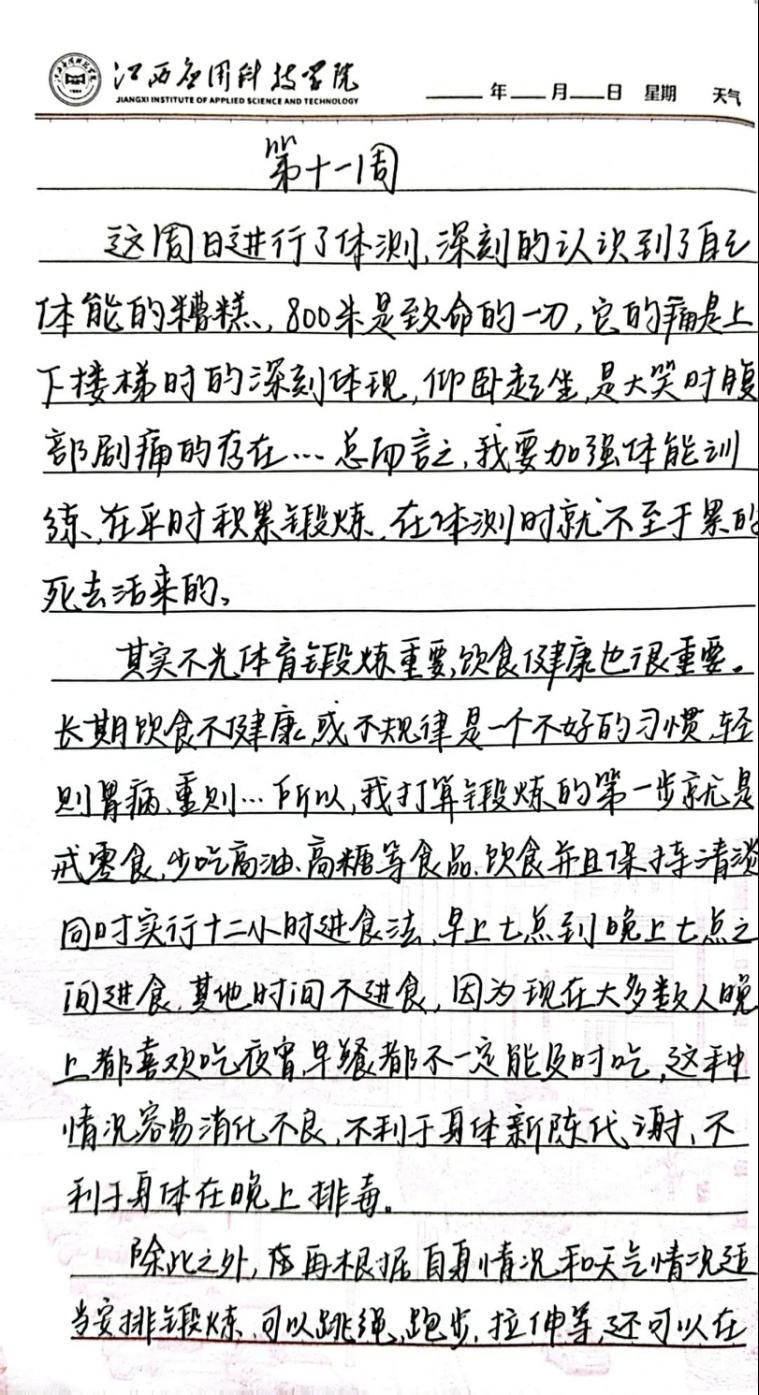 江西应用科技学院
JIANGXI INSTITUTE OF APPLIED SCIENCE AND TECHNOLOGY
年 月 日 星期 天气
第十一周
这周日进行了体测,深刻的认识到了自己
体能的糟糕、800米是致命的一刀,它的痛是上
下楼梯时的深刻体现,仰卧起坐,是大笑时腹
部剧痛的存在…总而言之,我要加强体能训
练、在平时积累锻炼,在体测时就不至于累的
死去活来的。
其实不光体育锻炼重要,饮食健康也很重要。
长期饮食不健康或不规律是一个不好的习惯,轻
则胃病、重则…所以,我打算锻炼的第一步就是
戒零食,少吃高油、高糖等食品,饮食并且保持清淡
同时实行十二小时进食法,早上七点到晚上七点之
间进食,其他时间不进食,因为现在大多数人晚
上都喜欢吃夜宵,早餐都不一定能及时吃,这种
情况容易消化不良,不利于身体新陈代谢,不
利于身体在晚上排毒。
除此之外,在再根据自身情况和天气情况适
当安排锻炼,可以跳绳,跑步,拉伸等,还可以在